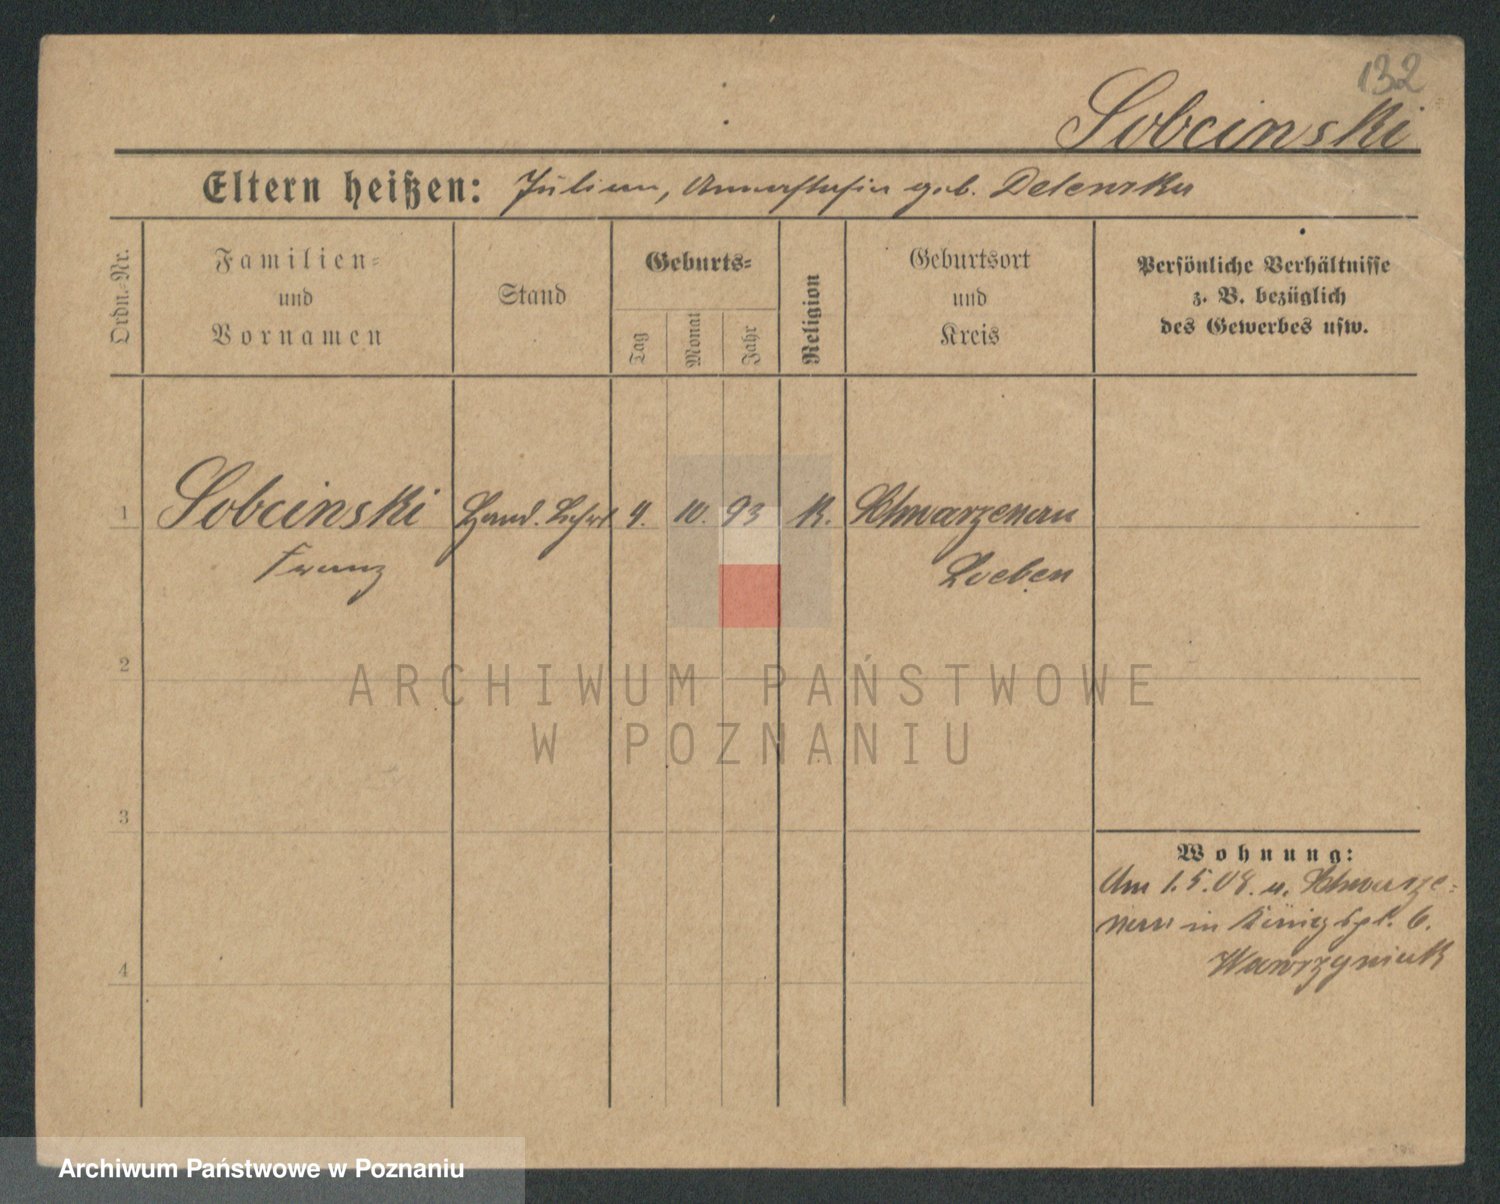 132
Sobcinski
Eltern heißen: Julian, Annastasia geb. Delewska
Ordn.-Nr.
Familien-
und
Vornamen
Stand
Geburts-
Tag
Monat
Jahr
Religion
Geburtsort
und
Kreis
Persönliche Verhältnisse
z. B. bezüglich
des Gewerbes usw.
1 Sobcinski Hand. Lehrl 4. 10. 93 K. Schwarzenau
Franz
2
3
4
Wohnung:
Am 1.5.08. v. Schwarze-
nau in Königspl. 6.
Wawrzyniak
ARCHIWUM PAŃSTWOWE
W POZNANIU
Archiwum Państwowe w Poznaniu